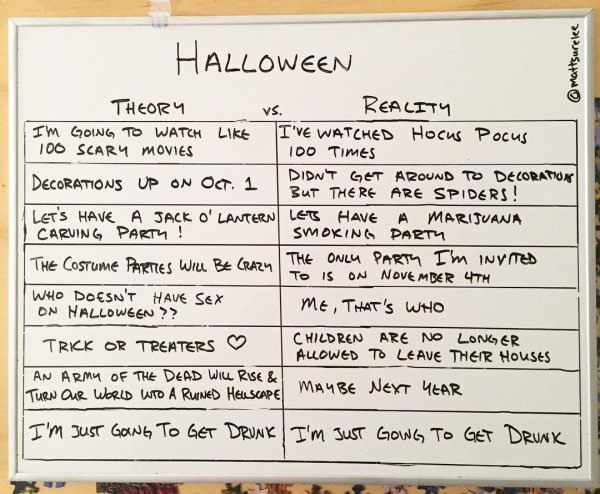 @mattsurelee
HALLOWEEN
THEORY vs. REALITY
I'M GOING TO WATCH LIKE
100 SCARY MOVIES
I'VE WATCHED HOCUS POCUS
100 TIMES
DECORATIONS UP ON OCT. 1
DIDN'T GET AROUND TO DECORATIONS
BUT THERE ARE SPIDERS!
LET'S HAVE A JACK O' LANTERN
CARVING PARTY!
LETS HAVE A MARIJUANA
SMOKING PARTY
THE COSTUME PARTIES WILL BE CRAZY
THE ONLY PARTY I'M INVITED
TO IS ON NOVEMBER 4TH
WHO DOESN'T HAVE SEX
ON HALLOWEEN??
ME, THAT'S WHO
TRICK OR TREATERS ♡
CHILDREN ARE NO LONGER
ALLOWED TO LEAVE THEIR HOUSES
AN ARMY OF THE DEAD WILL RISE &
TURN OUR WORLD INTO A RUINED HELLSCAPE
MAYBE NEXT YEAR
I'M JUST GOING TO GET DRUNK
I'M JUST GOING TO GET DRUNK